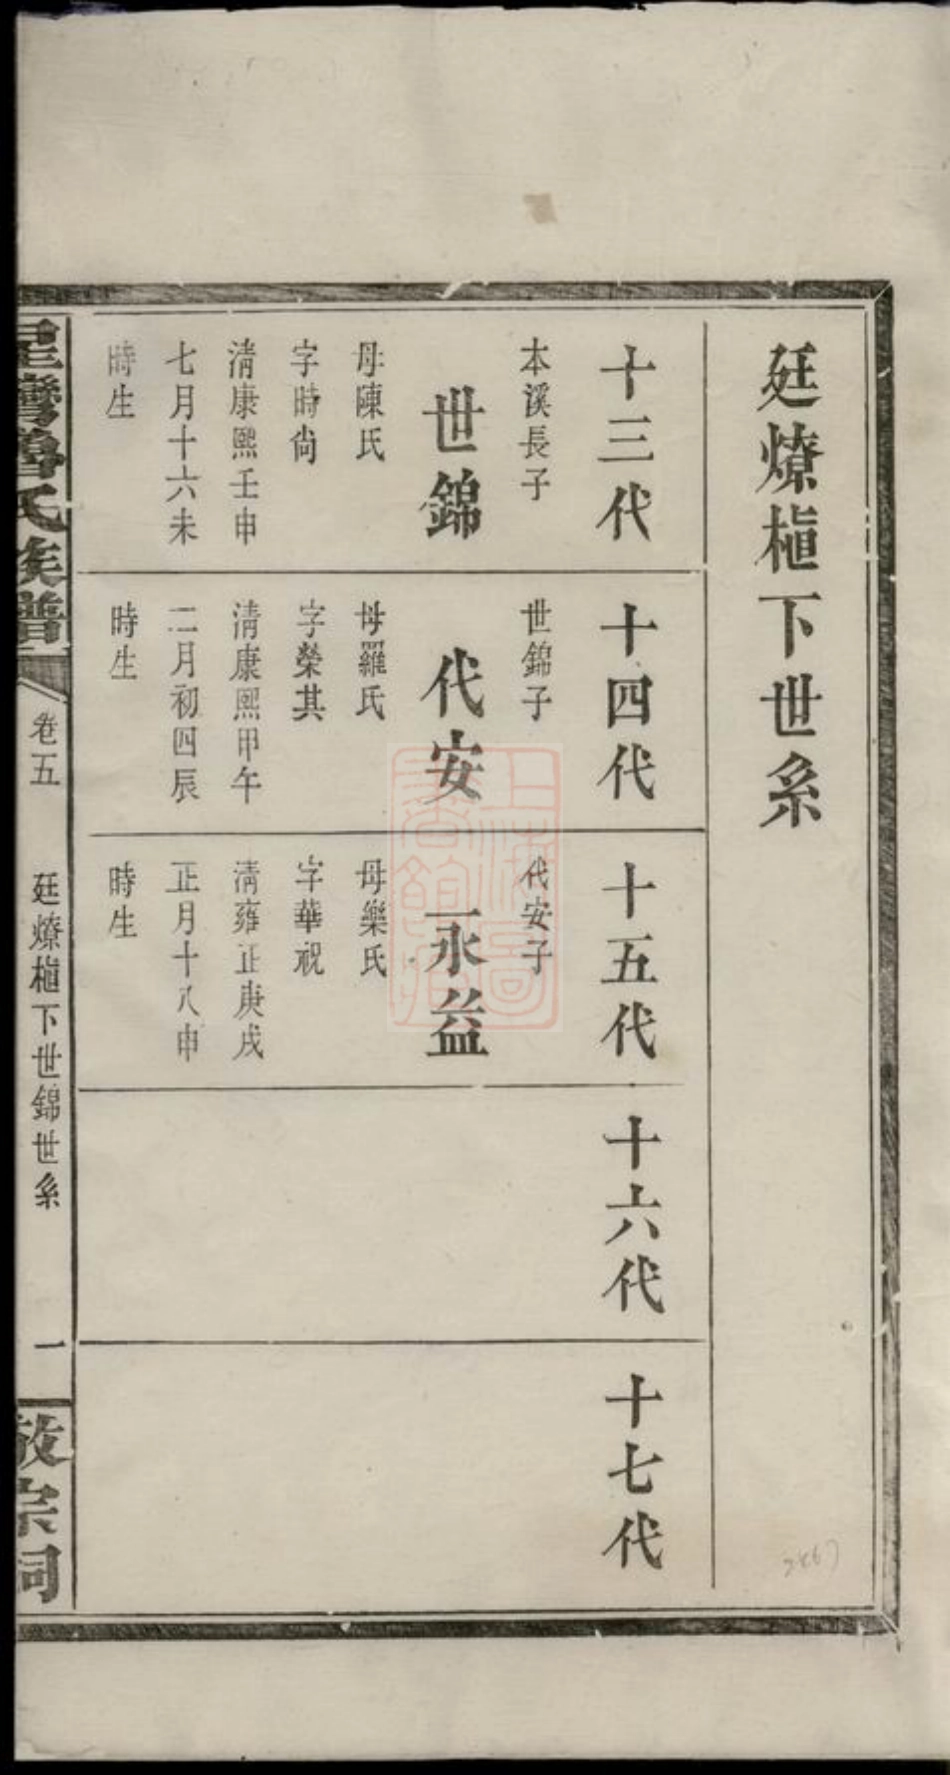 廷燎楦下世系
十三代
本溪長子
世錦
母陳氏
字時尚
清康熙壬申
七月十六未
時生
十四代
世錦子
代安
母羅氏
字榮其
清康熙甲午
二月初四辰
時生
十五代
代安子
永益
母樂氏
字華祝
清雍正庚戌
正月十八申
時生
十六代
十七代
灣魯氏族譜
卷五
廷燎楦下世錦世系
一
敬宗祠
上海圖
書館藏